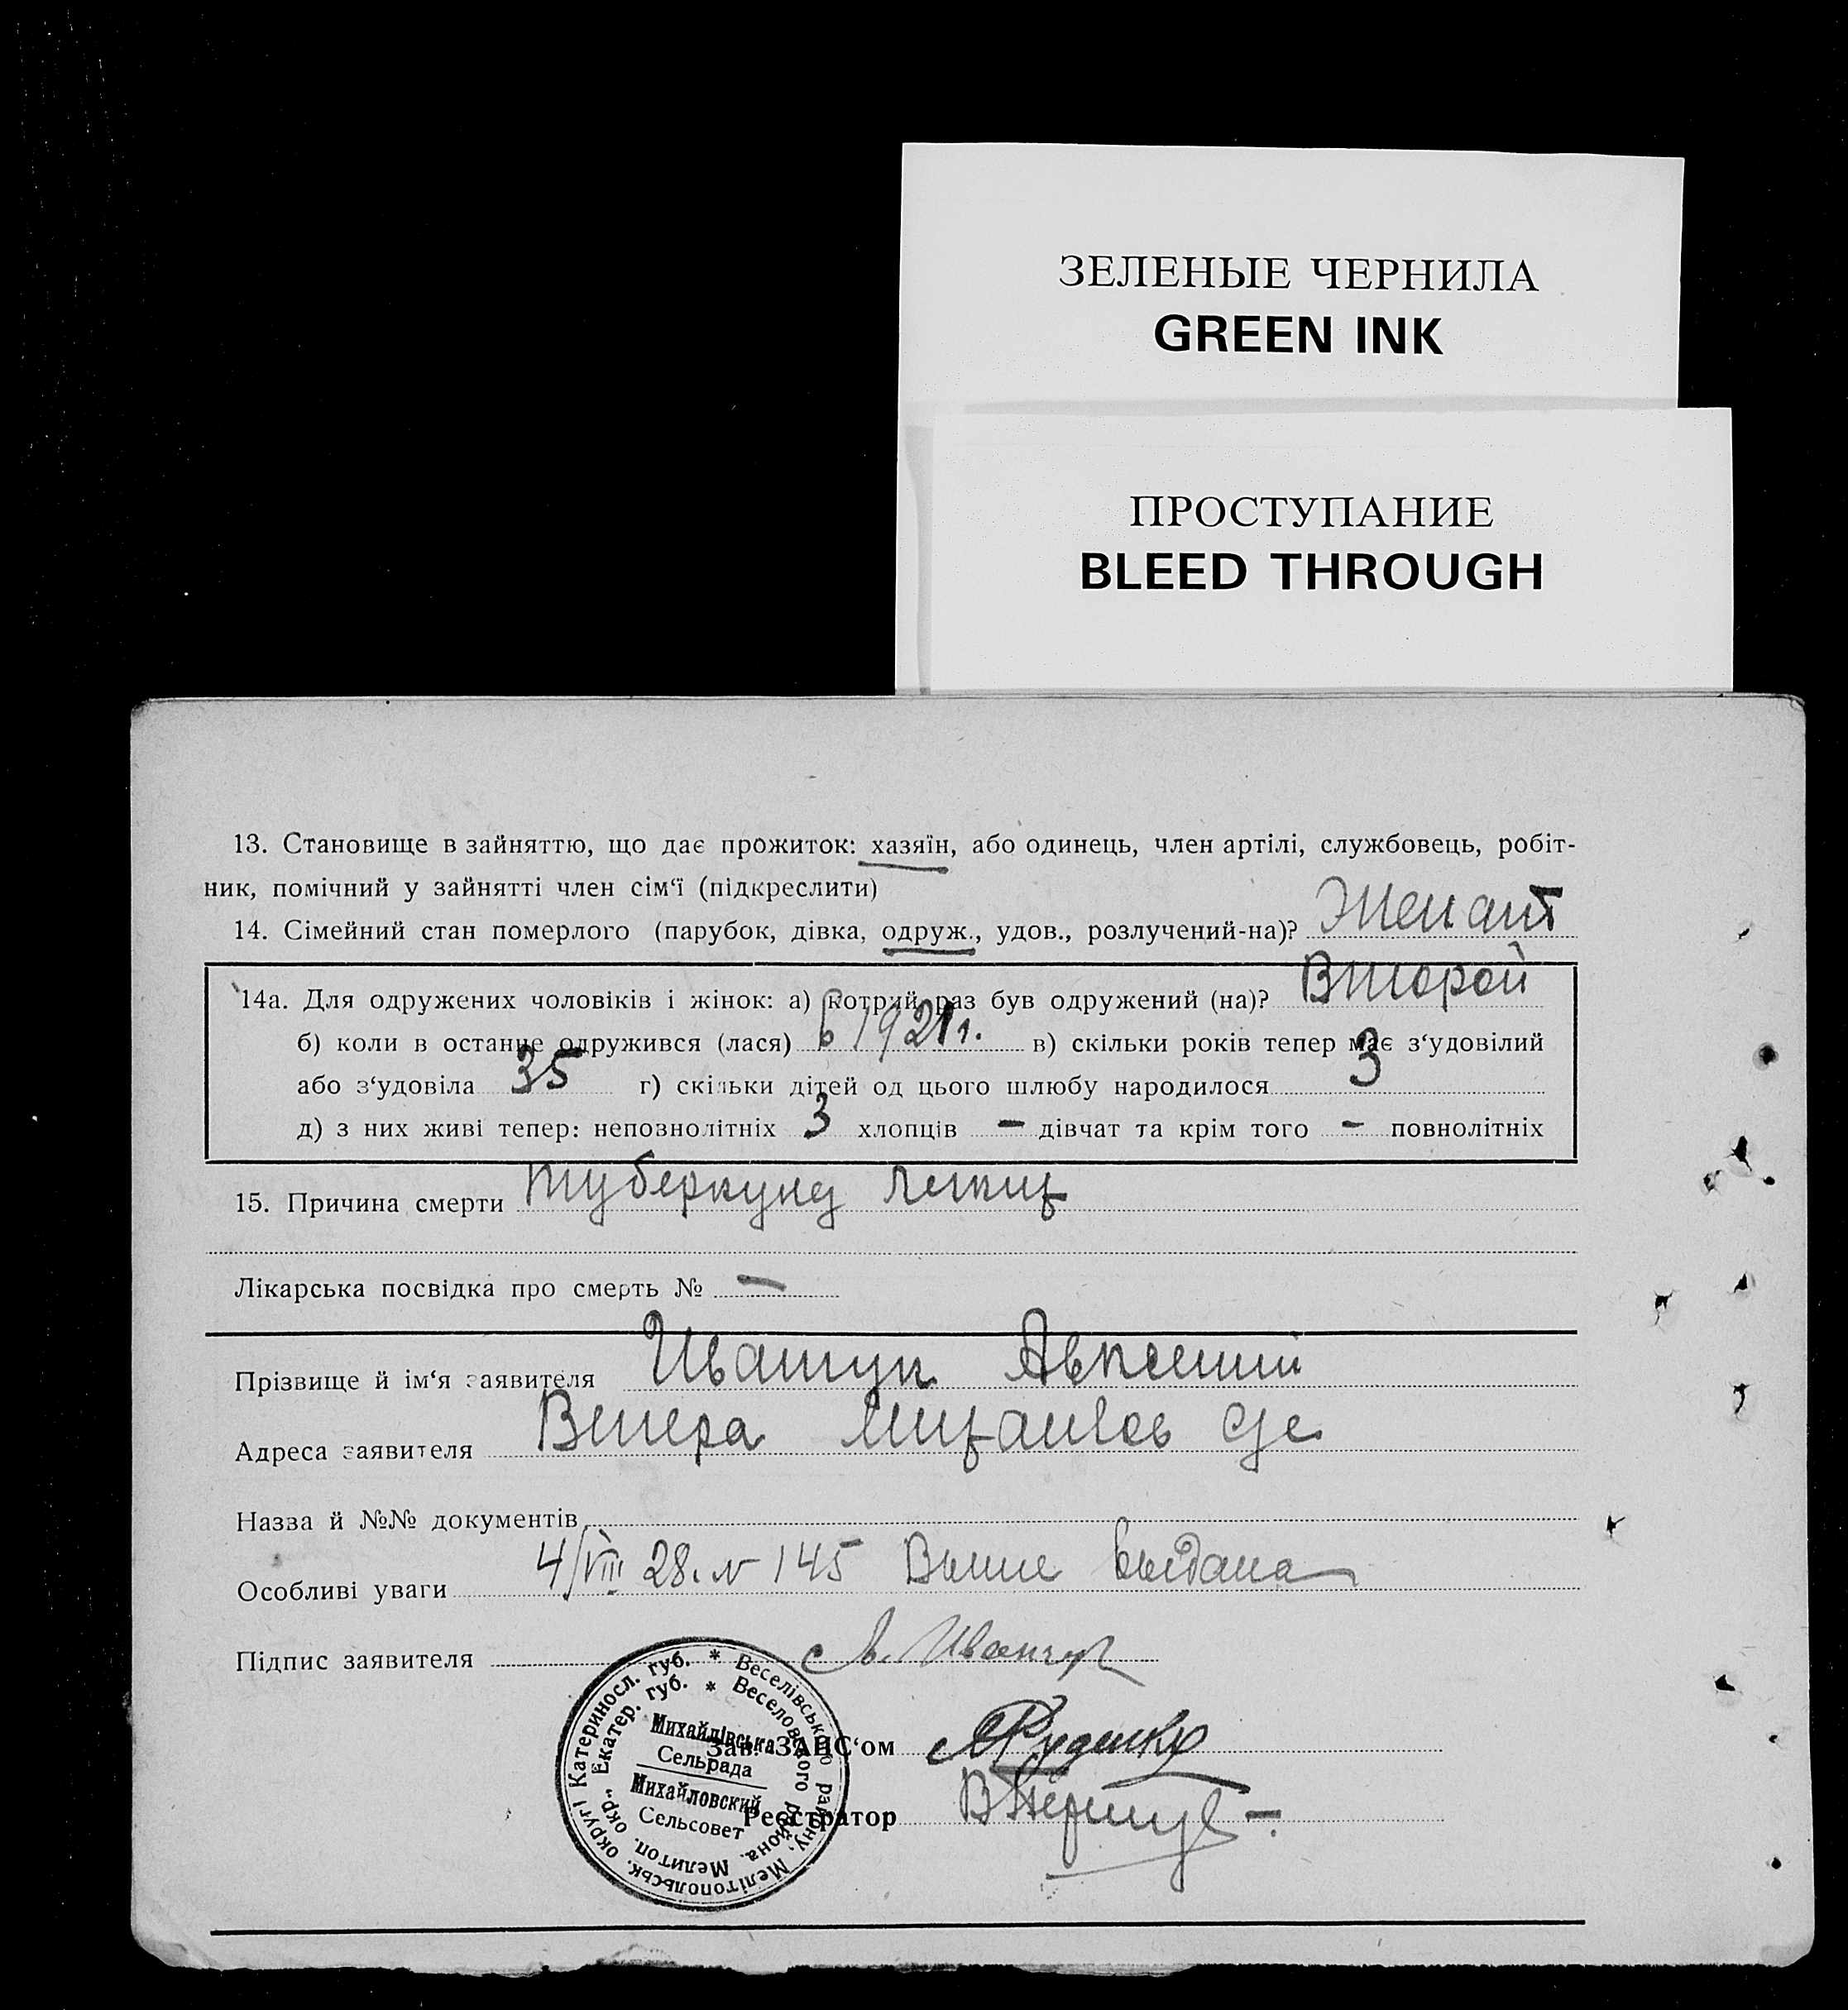 ЗЕЛЕНЫЕ ЧЕРНИЛА
GREEN INK
ПРОСТУПАНИЕ
BLEED THROUGH
13. Становище в зайняттю, що дає прожиток: хазяїн, або одинець, член артілі, службовець, робіт-
ник, помічний у зайнятті член сім‘ї (підкреслити)
14. Сімейний стан померлого (парубок, дівка, одруж., удов., розлучений-на)? Женат
14а. Для одружених чоловіків і жінок: а) котрий раз був одружений (на)? Второй
б) коли в останнє одружився (лася) в 1921 г. в) скільки років тепер має з‘удовілий
або з‘удовіла 35 г) скільки дітей од цього шлюбу народилося 3
д) з них живі тепер: неповнолітніх 3 хлопців – дівчат та крім того – повнолітніх
15. Причина смерти туберкулез легких
Лікарська посвідка про смерть № –
Прізвище й ім‘я заявителя Ивашук Авксентий
Адреса заявителя
Назва й №№ документів
Особливі уваги 4/VIII 28. N 145 выдана
Підпис заявителя
Зав. ЗАПС‘ом Руденко
Реєстратор
* Веселівського району, Мелітопольськ. округі Катериносл. губ.
* Веселовского района. Мелитоп. окр., Екатер. губ.
Михайлівська
Сельрада
Михайловский
Сельсовет